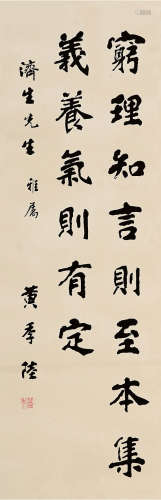 窮理知言則至本集
義養氣則有定
濟生先生雅屬
黃季陸